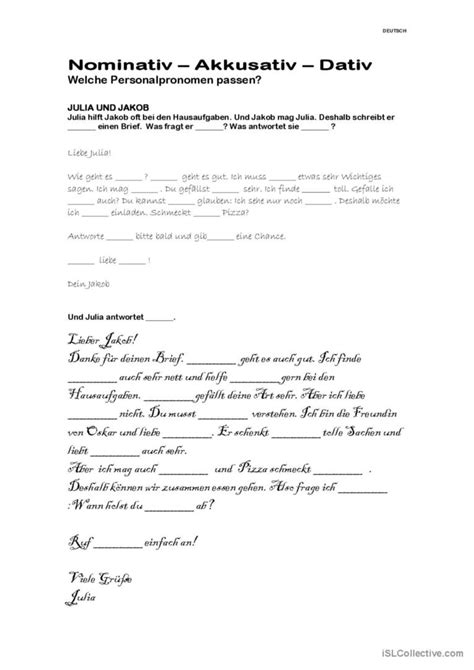 DEUTSCH
Nominativ – Akkusativ – Dativ
Welche Personalpronomen passen?
JULIA UND JAKOB
Julia hilft Jakob oft bei den Hausaufgaben. Und Jakob mag Julia. Deshalb schreibt er
_______ einen Brief. Was fragt er _______? Was antwortet sie _______ ?
Liebe Julia!
Wie geht es _______ ? _______ geht es gut. Ich muss _______ etwas sehr Wichtiges
sagen. Ich mag _______ . Du gefällst _______ sehr. Ich finde _______ toll. Gefalle ich
_______ auch? Du kannst _______ glauben: Ich sehe nur noch _______ . Deshalb möchte
ich _______ einladen. Schmeckt _______ Pizza?
Antworte _______ bitte bald und gib_______ eine Chance.
_______ liebe _______ !
Dein Jakob
Und Julia antwortet _______.
Lieber Jakob!
Danke für deinen Brief. __________ geht es auch gut. Ich finde
__________ auch sehr nett und helfe __________gern bei den
Hausaufgaben. __________ gefällt deine Art sehr. Aber ich liebe
__________ nicht. Du musst __________ verstehen. Ich bin die Freundin
von Oskar und liebe __________. Er schenkt __________ tolle Sachen und
liebt __________ auch sehr.
Aber ich mag auch __________ und Pizza schmeckt __________ .
Deshalb können wir zusammen essen gehen. Also frage ich __________
:Wann holst du __________ ab?
Ruf __________ einfach an!
Viele Grüße
Julia
iSLCollective.com